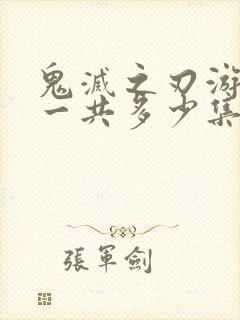 鬼滅之刃游
一共多少集
張軍劍